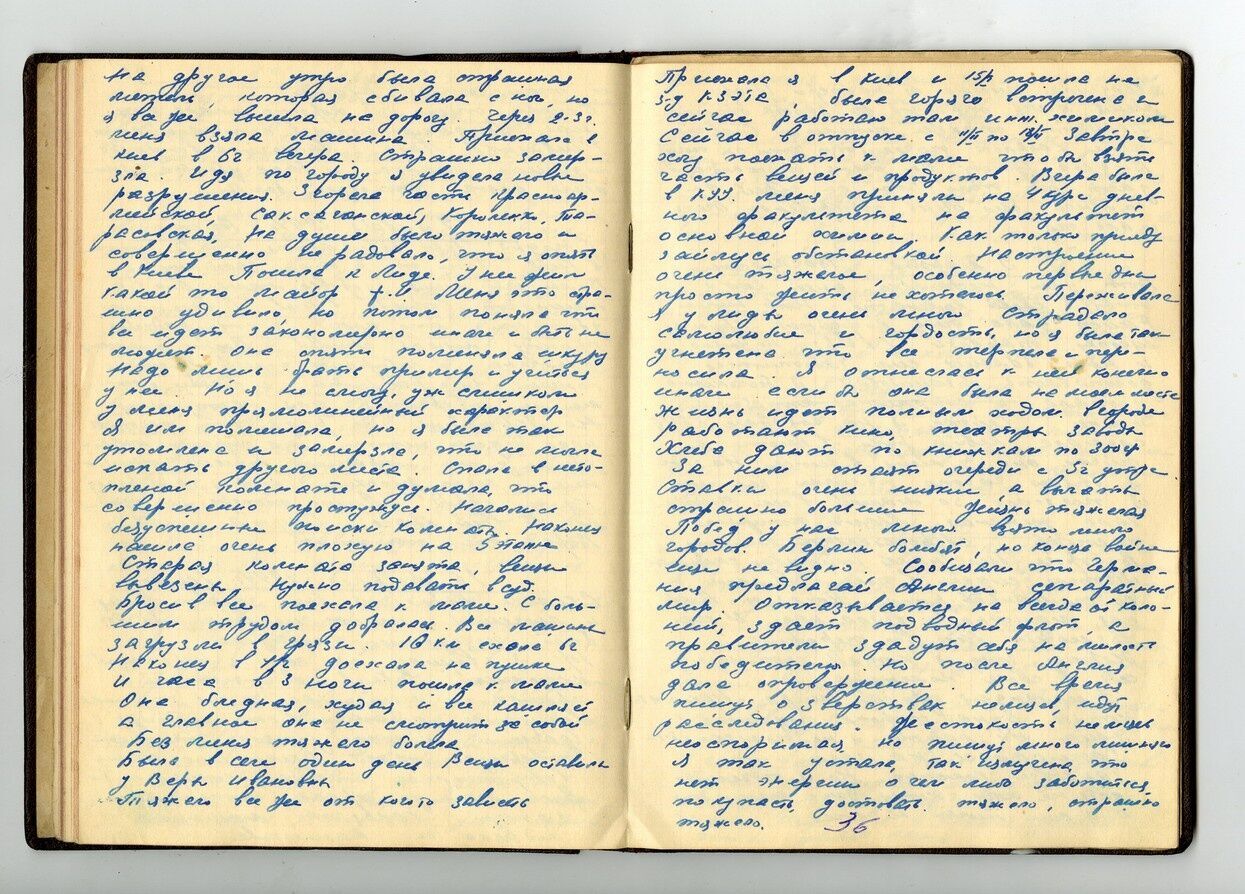 На другое утро была страшная
метель, которая сбивала с ног, но
я все же вышла на дорогу. Через 2-3 г.
меня взяла машина. Приехала в
Киев в 6г вечера. Страшно замер-
зла. Идя по городу я увидела новые
разрушения. Згорела часть Красноар-
мейской, Саксаганской, Короленко, Та-
расовская, На душе было тяжело и
совершенно не радовало, что я опять
в Киеве Пошла к Лиде. У нее жил
какой то майор Меня это стра-
шно удивило, но потом поняла что
все идет закономерно иначе и быть не
может. Она опять поменяла шкуру
Надо лишь брать пример и учиться
у нее Но я не смогу, уж слишком
у меня прямолинейный характер
Я им помешала, но я была так
утомлена и замерзла что не могла
искать другого места. Спала в нето-
пленой комнате и думала, что
совершенно простужусь. Начались
безуспешные поиски комнаты. Наконец
нашла очень плохую на 5 этаже
Старая комната занята, вещи
вывезены. Нужно подавать в суд.
Бросив все поехала к маме. С боль-
шим трудом добралась. Все машины
загрузли в грязи. 10 км ехала 6г
Наконец в 1г доехала на пушке
И часа в 3 ночи пошла к маме
Она бледная, худая и все кашляет
а главное она не смотрит за собой
Без меня тяжело болела
Была в селе один день Вещи оставила
у Веры Ивановны
Тяжело все же от кого то зависеть
Приехала я в Киев и 15/ пошла на
з-д КЗЭТА, была горячо встречена и
сейчас работаю там инж. химиком
Сейчас в отпуске с по Завтра
хочу поехать к маме чтобы взять
часть вещей и продуктов. Вчера была
в меня приняли на 4 курс днев-
ного факультета на факультет
основной химии. Как только приеду
займусь обстановкой Настроение
очень тяжелое, особенно первые дни
просто жить не хотелось. Переживала
я у Лиды очень много Страдало
самолюбие и гордость, но я была так
угнетена что все терпела и пере-
носила Я отнеслась к ней конечно
иначе если бы она была на моем месте
Жизнь идет полным ходом. В городе
работают кино, театры заводы
Хлеба дают по книжкам по 300г
За ним стоят очереди с 5г утра
Ставки очень низкие, а вычеты
страшно большие Жизнь тяжелая
Побед у нас много взято много
городов. Берлин бомбят, но конца войне
еще не видно. Сообщали что Герма-
ния предлагай Англии сепаратный
мир. Отказывается на всегда от коло-
ний, здает подводный флот, а
правители здадут себя на милость
победителю Но после Англия
дала опровержение. Все время
пишут о зверствах немцев, идут
расследования. Жестокость немцев
неоспоримая, но пишут много лишнего
Я так устала, так измучена, что
нет энергии о чем либо заботиться,
покупать, доставать. тяжело, страшно
тяжело.
36